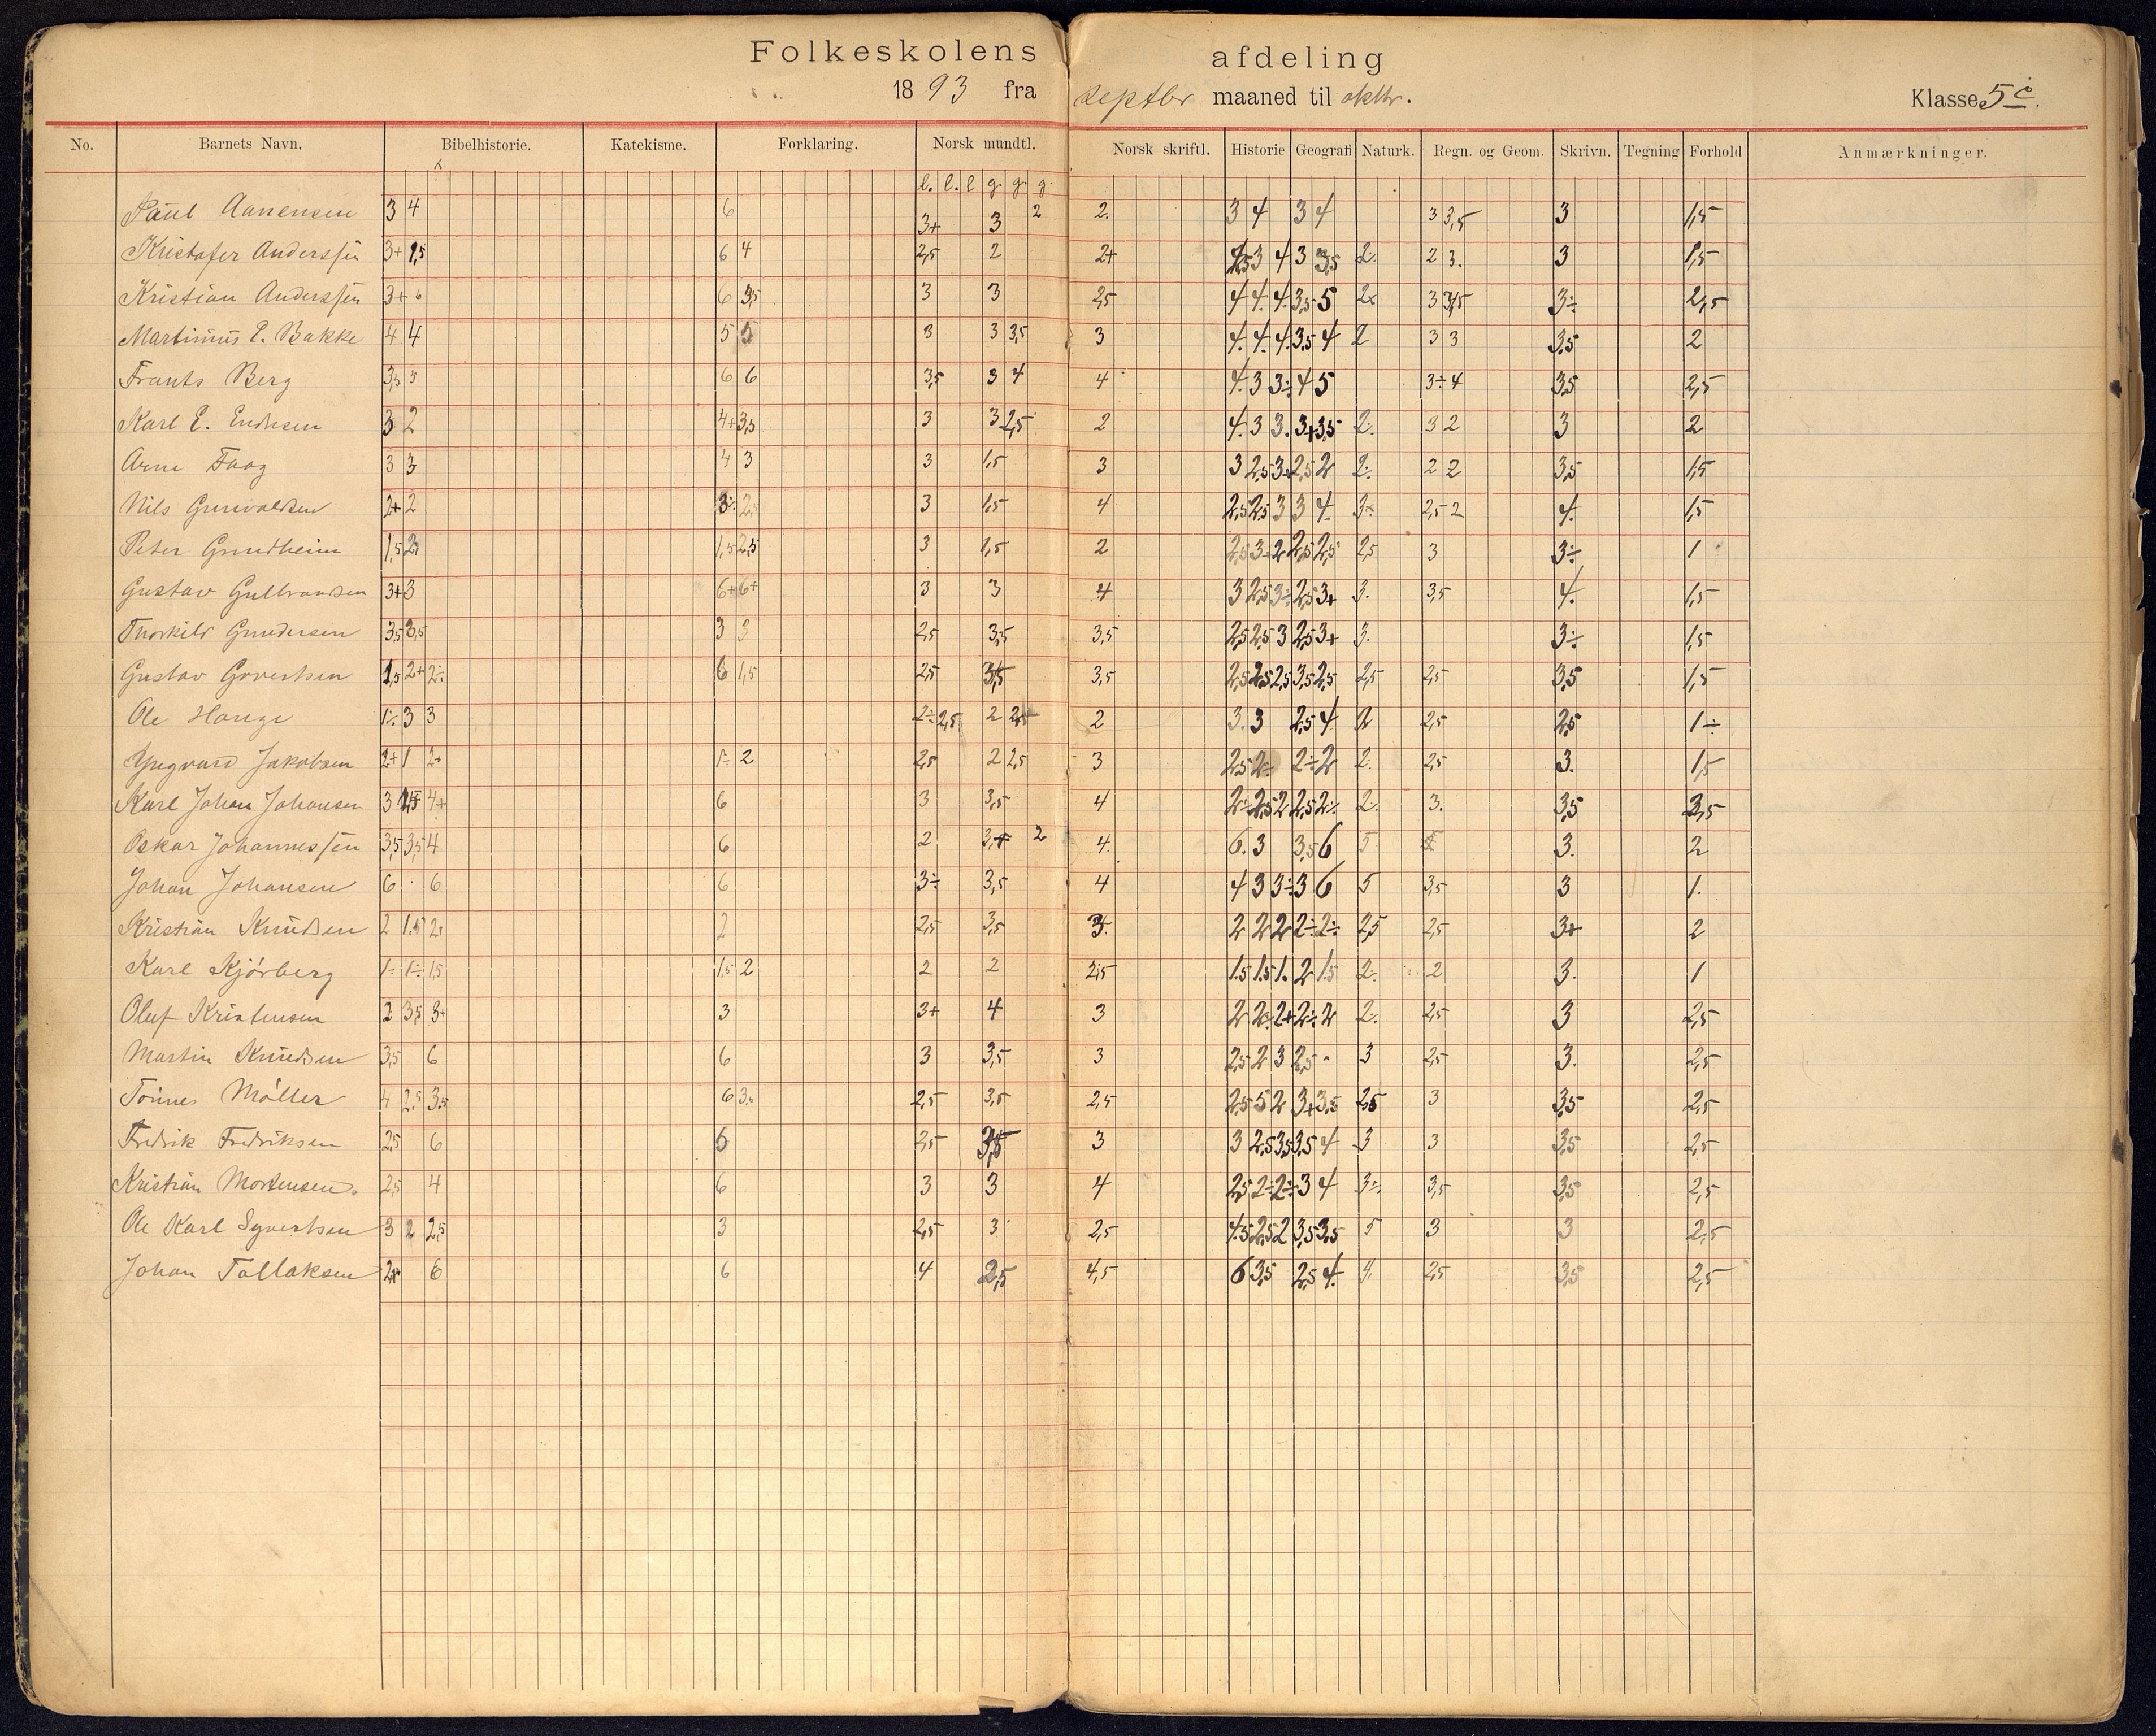 Folkeskolens afdeling
1893 fra septbr maaned til oktbr. Klasse 5c.
No. Barnets Navn. Bibelhistorie. Katekisme. Forklaring. Norsk mundtl. Norsk skriftl. Historie Geografi Naturk. Regn. og Geom. Skrivn. Tegning Forhold Anmærkninger.
l. l. l g. g. g.
Paul Aanensen 3 4 6 3+ 3 2 2. 3 4 3 4 3 3,5 3 1,5
Kristofer Anderssen 3+ 1,5 6 4 2,5 2 2+ 3 4 3 3,5 2÷ 2 3. 3 1,5
Kristian Anderssen 3+ 6 6 3,5 3 3 2,5 4. 4. 4. 3,5 5 3 3,5 3÷ 2,5
Martinius P. Bakke 4 4 5 5 3 3 3,5 3 4. 4. 4. 3,5 4 2 3 3 3,5 2
Frants Berg 3,5 6 6 3,5 3 4 4 4. 3 3÷ 4 5 3÷ 4 3,5 2,5
Karl E. Endresen 3 2 4+ 3,5 3 3 2,5 2 4. 3 3. 3+ 3,5 2÷ 3 2 3 2
Arne Faag 3 3 4 3 3 1,5 3 3 2,5 3+ 2,5 2 2÷ 2 2 3,5 1,5
Nils Gunvaldsen 2+ 2 3÷ 2,5 3 1,5 4 2,5 2,5 3 3 4. 2,5 2 4. 1,5
Peter Grundheim 1,5 1,5 2,5 3 1,5 2 2,5 3÷ 2 2,5 2,5 2,5 3 3÷ 1
Gustav Gulbrandsen 3+ 3 6+ 6+ 3 3 4 3 2,5 3÷ 2,5 3+ 3. 3,5 4. 1,5
Thorkild Gundersen 3,5 3,5 3 3 2,5 3,5 3,5 2,5 2,5 3 2,5 3+ 3. 3÷ 1,5
Gustav Govertsen 1,5 2+ 2÷ 6 1,5 2,5 3,5 3,5 2,5 2,5 2,5 3,5 2,5 2,5 2,5 3,5 1,5
Ole Hauge 1÷ 3 3 2÷ 2,5 2 2,5 2 3. 3 2,5 4 2 2,5 2,5 1÷
Yngvard Jakobsen 2+ 1 2+ 1÷ 2 2,5 2 2,5 3 2,5 2÷ 2÷ 2 2. 2,5 3. 1,5
Karl Johan Johansen 3 4+ 6 3 3,5 4 2÷ 2,5 2 2,5 2÷ 2. 3. 3,5 3,5
Oskar Johannessen 3,5 3,5 4 6 2 2 4. 6. 3 3,5 6 5 3. 2
Johan Johansen 6 6 6 3÷ 3,5 4 4 3 3÷ 3 6 5 3,5 3 1.
Kristian Knudsen 2 1,5 2+ 2 2,5 3,5 3. 2 2 2 2÷ 2÷ 2,5 2,5 3+ 2
Karl Kjørberg 1÷ 1÷ 1,5 1,5 2 2 2 2,5 1,5 1,5 1. 2 1,5 2÷ 2 3. 1
Oluf Kristensen 2 3,5 3+ 3 3+ 4 3 2 2÷ 2+ 2÷ 2 2. 2,5 3 2,5
Martin Knudsen 3,5 6 6 3 3,5 3 2,5 2 3 2,5 3 2,5 3. 2,5
Tønnes Møller 4 2,5 3,5 6 3,5 2,5 3,5 2,5 2,5 5 2 3+ 3,5 2,5 3 3,5 2,5
Fredrik Fredriksen 2,5 6 6 2,5 3,5 3 3 2,5 3,5 3,5 4 3 3 3,5 2,5
Kristian Mortensen. 2,5 4 6 3 3 4 2,5 2÷ 2÷ 3 4 3÷ 3,5 3,5 2,5
Ole Karl Syvertsen 3 2 2,5 3 2,5 3 2,5 4,5 2,5 2 3,5 3,5 5 3 3 2,5
Johan Tallaksen 6 6 4 2,5 4,5 6 3,5 2,5 4. 4. 2,5 3,5 2,5